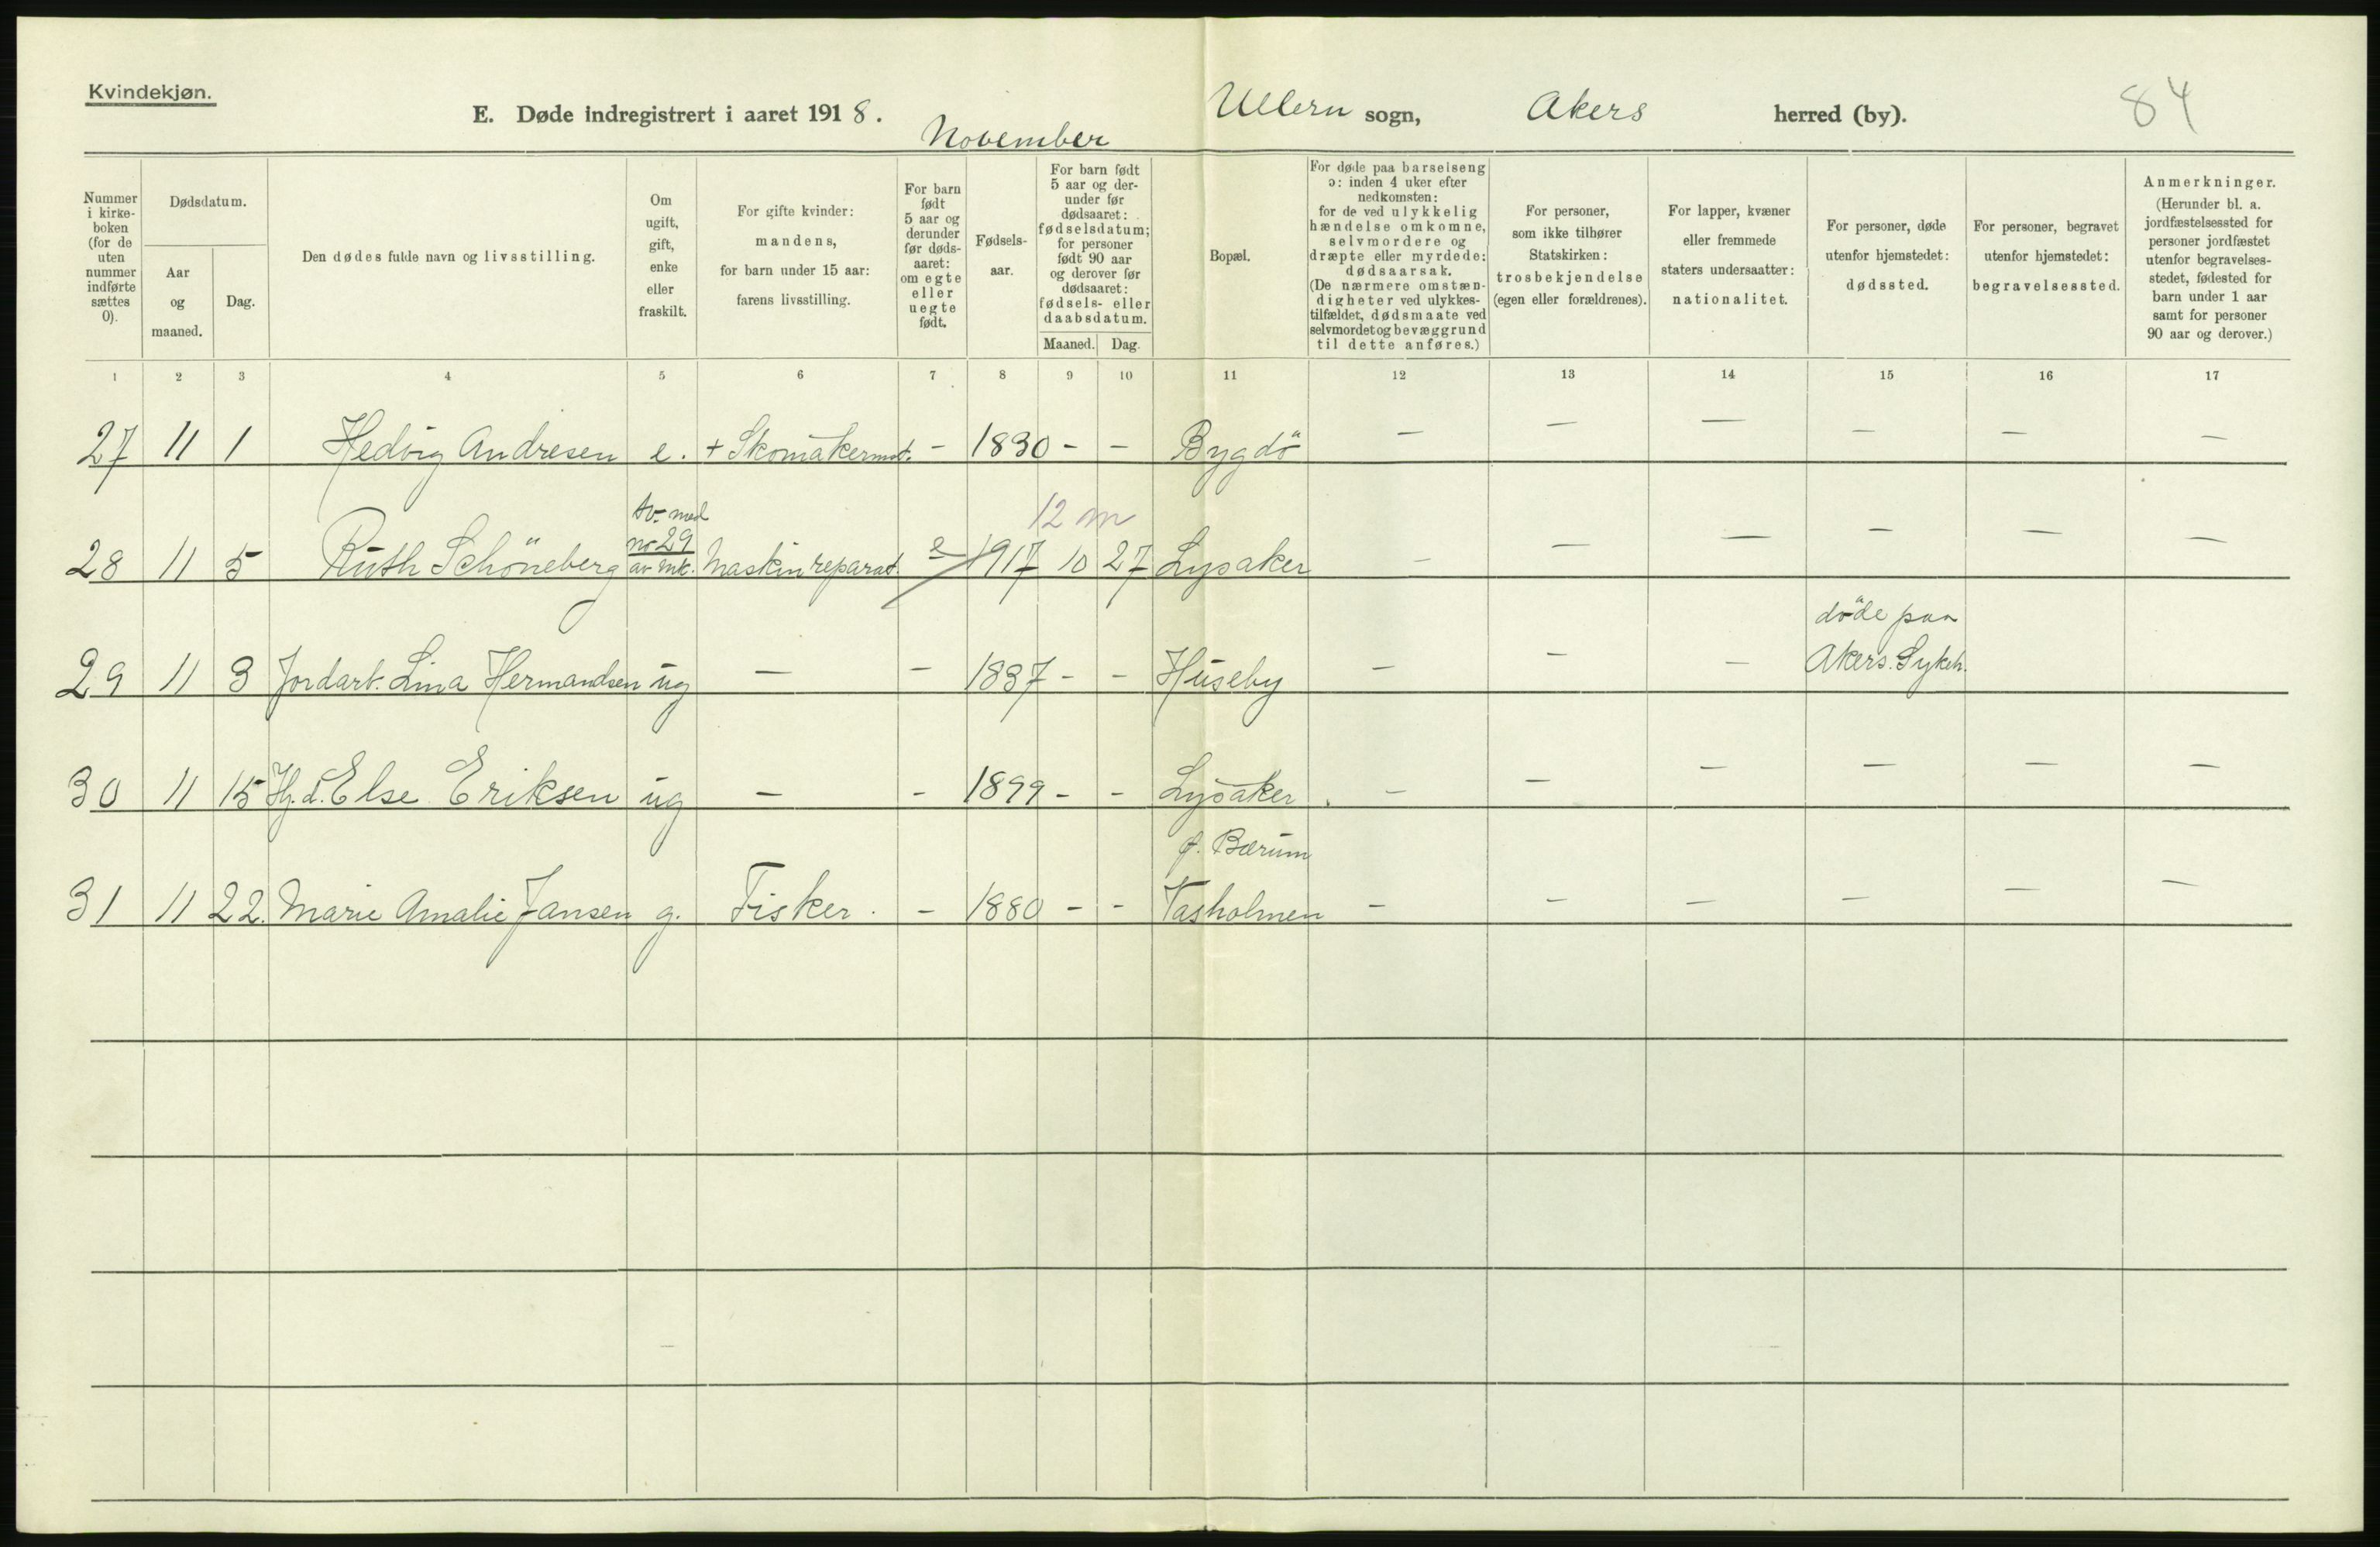 Kvindekjøn.
E. Døde indregistrert i aaret 1918. November Ullern sogn, Akers herred (by). 84
Nummer i kirke-boken (for de uten nummer indførte sættes 0).
Dødsdatum.
Aar og maaned.
Dag.
Den dødes fulde navn og livsstilling.
Om ugift, gift, enke eller fraskilt.
For gifte kvinder: mandens, for barn under 15 aar: farens livsstilling.
For barn født 5 aar og derunder før døds-aaret: om egte eller uegte født.
Fødsels-aar.
For barn født 5 aar og der-under før dødsaaret: fødselsdatum; for personer født 90 aar og derover før dødsaaret: fødsels- eller daabsdatum.
Maaned. Dag.
Bopæl.
For døde paa barselseng ɔ: inden 4 uker efter nedkomsten: for de ved ulykkelig hændelse omkomne, selvmordere og dræpte eller myrdede: dødsaarsak. (De nærmere omstæn-digheter ved ulykkes-tilfældet, dødsmaate ved selvmordet og bevæggrund til dette anføres.)
For personer, som ikke tilhører Statskirken: trosbekjendelse (egen eller forældrenes).
For lapper, kvæner eller fremmede staters undersaatter: nationalitet.
For personer, døde utenfor hjemstedet: dødssted.
For personer, begravet utenfor hjemstedet: begravelsessted.
Anmerkninger. (Herunder bl. a. jordfæstelsessted for personer jordfæstet utenfor begravelses-stedet, fødested for barn under 1 aar samt for personer 90 aar og derover.)
1 2 3 4 5 6 7 8 9 10 11 12 13 14 15 16 17
27 11 1 Hedvig Andresen e. + Skomakermst. - 1830 - - Bygdö - - - - - -
med no 29 12 m
28 11 5 Ruth Schöneberg av mk. Maskinreparat. e 1917 10 27 Lysaker - - - - - -
döde paa
29 11 3 Jordarb. Lina Hermandsen ug - - 1837 - - Huseby - - - Akers. Sykeh.
30 11 15 Hj.d. Else Eriksen ug - - 1899 - - Lysaker. - - - - - -
f. Bærum
31 11 22. Marie Amalie Jansen g. Fisker. - 1880 - - Vasholmen - - - - - -